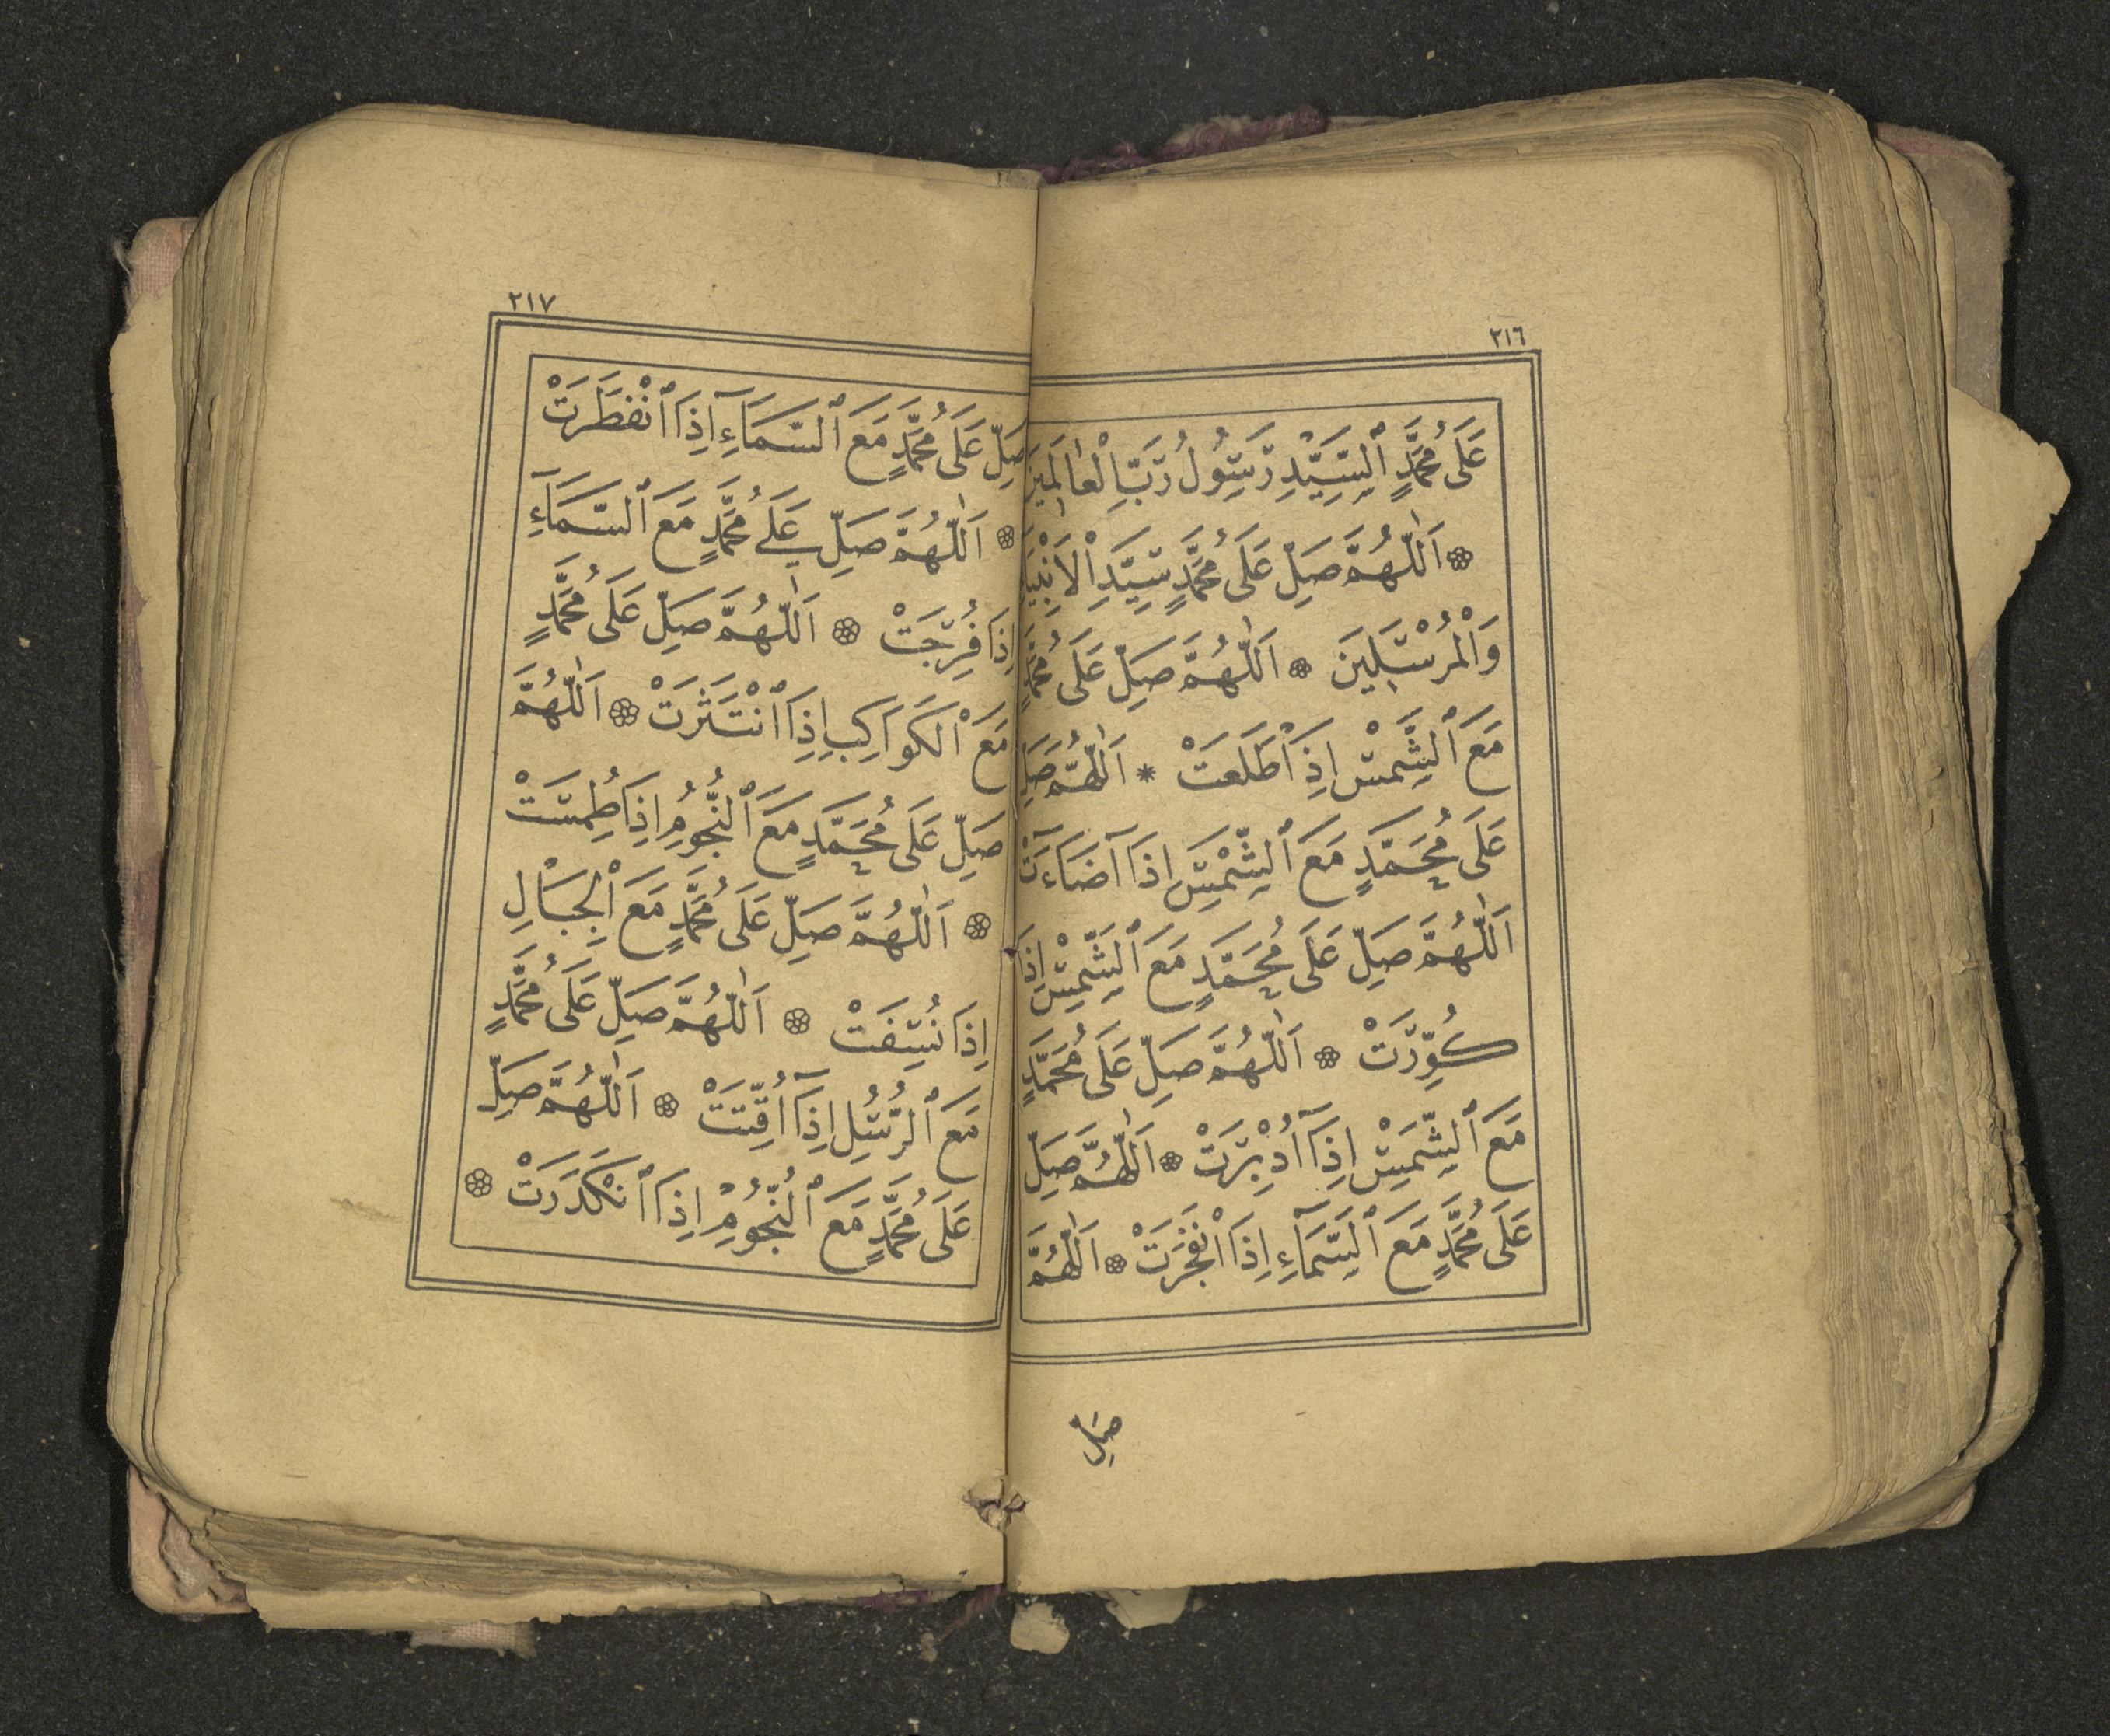 ٢١٦
عَلَى مُحَمَّدٍ ٱلسَّيِّدِ رَسُولُ رَبِّ الْعَالَمِينَ
۞ اَللّٰهُمَّ صَلِّ عَلَى مُحَمَّدٍ سَيِّدِ الْاَنْبِيَا
وَالْمُرْسَلِينَ ۞ اَللّٰهُمَّ صَلِّ عَلَى مُحَمَّدٍ
مَعَ ٱلشَّمْسِ اِذَا طَلَعَتْ * اَللّٰهُمَّ صَلِّ
عَلَى مُحَمَّدٍ مَعَ ٱلشَّمْسِ اِذَا آضَاءَتْ
اَللّٰهُمَّ صَلِّ عَلَى مُحَمَّدٍ مَعَ ٱلشَّمْسِ اِذَا
كُوِّرَتْ ۞ اَللّٰهُمَّ صَلِّ عَلَى مُحَمَّدٍ
مَعَ ٱلشَّمْسِ اِذَآ اَدْبَرَتْ ۞ اَللّٰهُمَّ صَلِّ
عَلَى مُحَمَّدٍ مَعَ ٱلسَّمَآءِ اِذَا انْفَجَرَتْ ۞ اَللّٰهُمَّ
صَلِّ
٢١٧
صَلِّ عَلَى مُحَمَّدٍ مَعَ ٱلسَّمَآءِ اِذَا ٱنْفَطَرَتْ
۞ اَللّٰهُمَّ صَلِّ عَلَى مُحَمَّدٍ مَعَ ٱلسَّمَآءِ
اِذَا فُرِجَتْ ۞ اَللّٰهُمَّ صَلِّ عَلَى مُحَمَّدٍ
مَعَ ٱلكَوَاكِبِ اِذَا ٱنْتَثَرَتْ ۞ اَللّٰهُمَّ
صَلِّ عَلَى مُحَمَّدٍ مَعَ ٱلنُّجُومِ اِذَا طُمِسَتْ
۞ اَللّٰهُمَّ صَلِّ عَلَى مُحَمَّدٍ مَعَ ٱلْجِبَالِ
اِذَا نُسِفَتْ ۞ اَللّٰهُمَّ صَلِّ عَلَى مُحَمَّدٍ
مَعَ ٱلرُّسُلِ اِذَآ اُقِّتَتْ ۞ اَللّٰهُمَّ صَلِّ
عَلَى مُحَمَّدٍ مَعَ ٱلنُّجُومِ اِذَا ٱنْكَدَرَتْ ۞